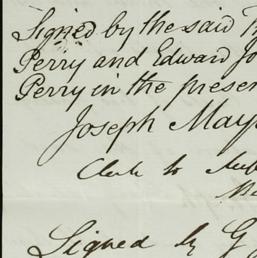 Signed by the said
Perry and Edward
Perry in the presen
Joseph May
Clerk to
Signed by G